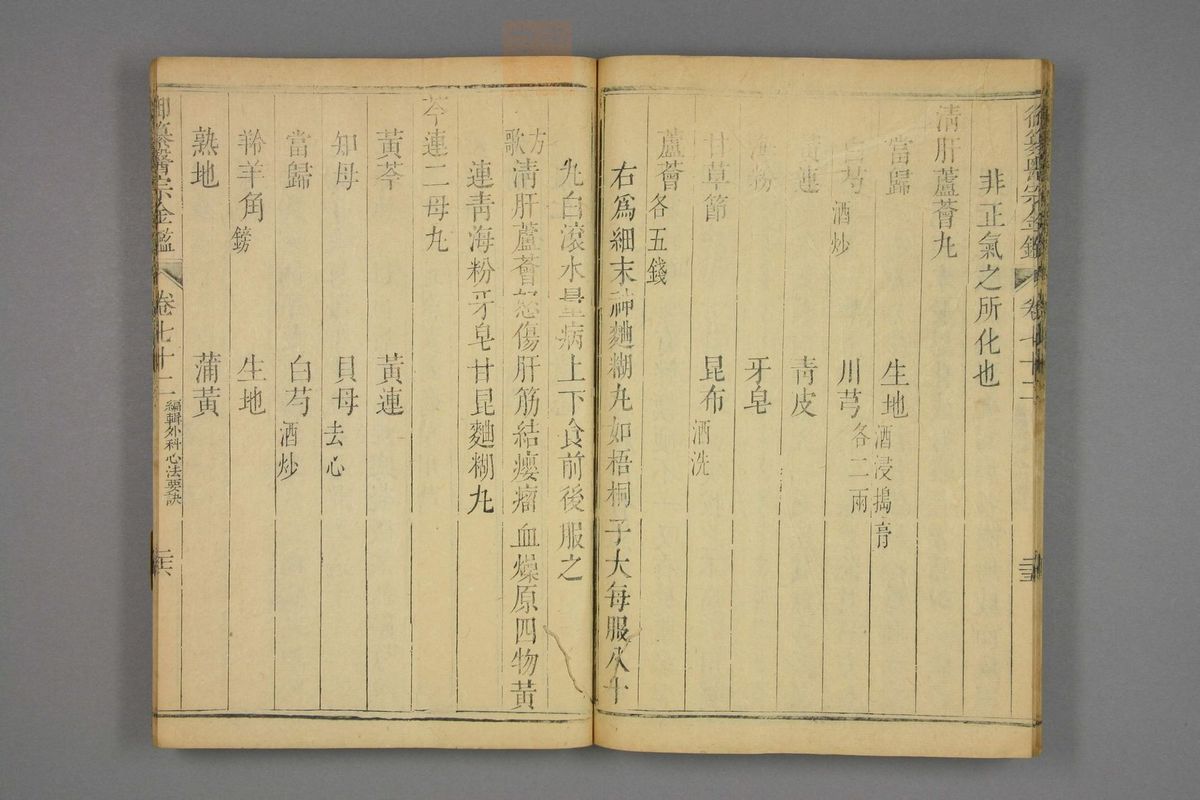 御纂醫宗金鑑 卷七十二
非正氣之所化也
清肝蘆薈丸
當歸 生地酒浸搗膏
白芍酒炒 川芎各二兩
黃連 青皮
海粉 牙皂
甘草節 昆布酒洗
蘆薈各五錢
右爲細末神麯糊丸如梧桐子大每服八十
丸白滾水量病上下食前後服之
方歌 清肝蘆薈怒傷肝筋結癭瘤血燥原四物黃
連青海粉牙皂甘昆麯糊丸
芩連二母丸
黃芩 黃連
知母 貝母去心
當歸 白芍酒炒
羚羊角鎊 生地
熟地 蒲黃
御纂醫宗金鑑 卷七十二 編輯外科心法要訣 二六